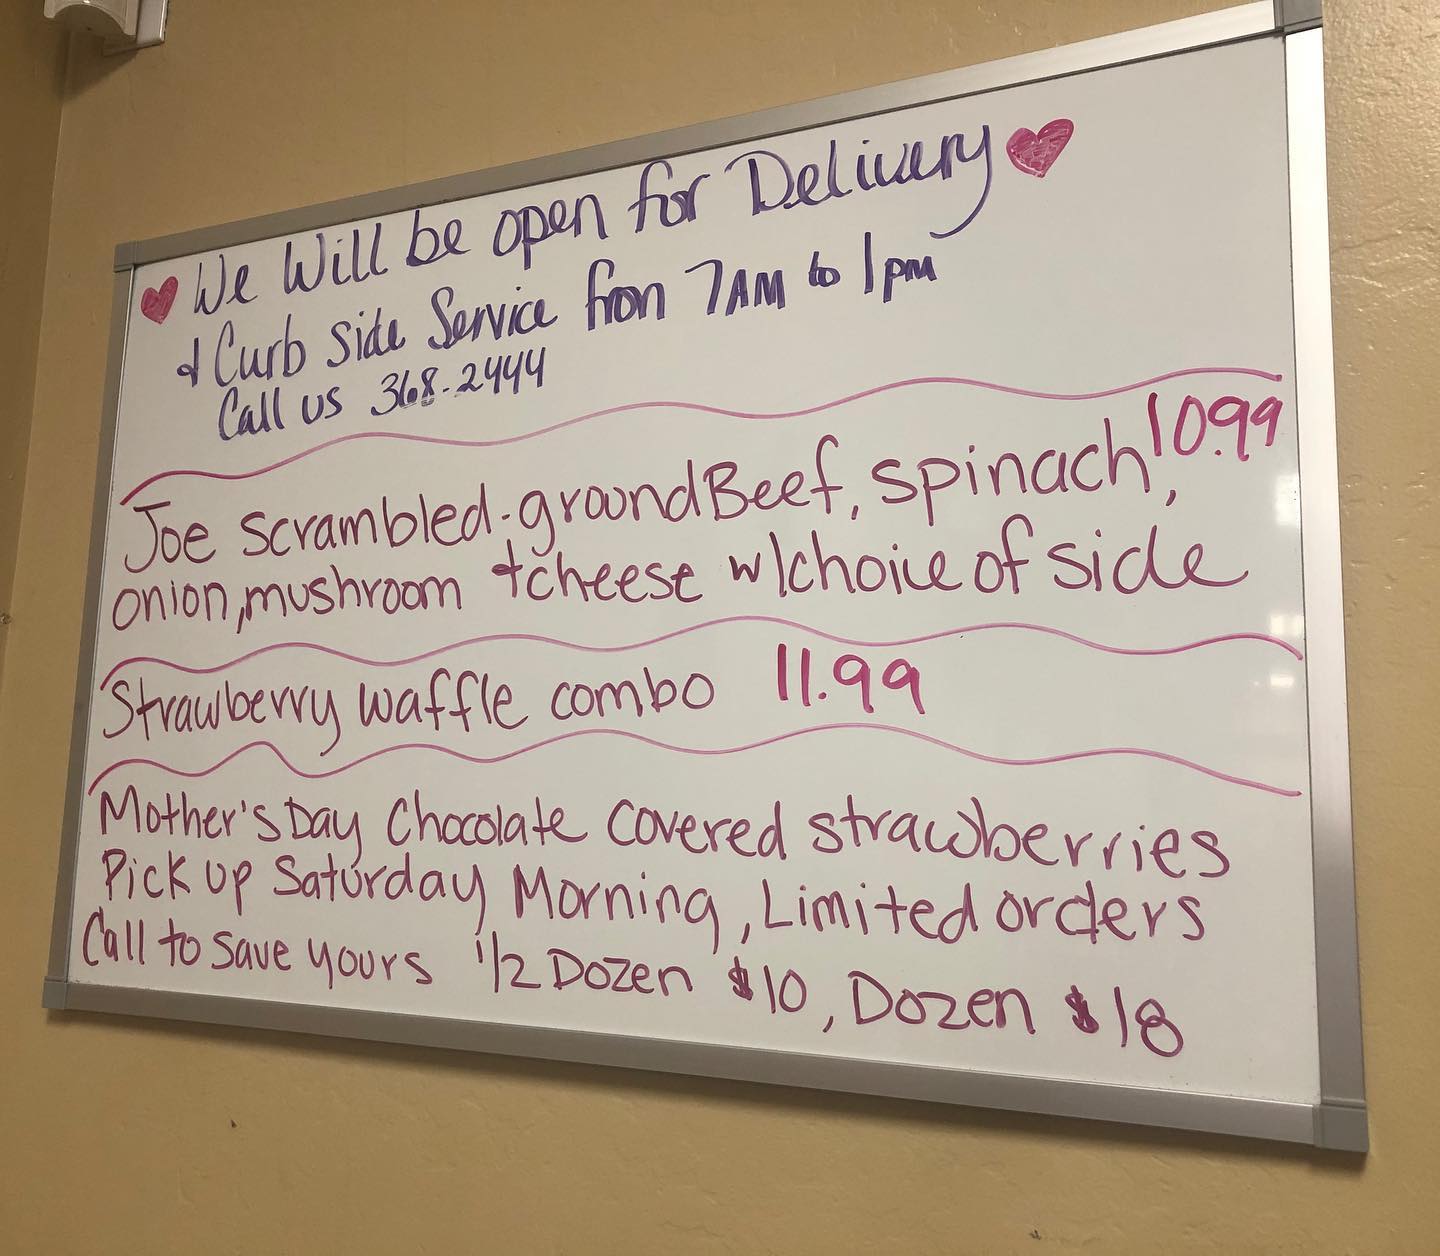 We Will be open for Delivery
& Curb Side Service from 7AM to 1pm
Call us 368-2444
10.99
Joe scrambled-ground Beef, spinach,
onion, mushroom + cheese w/choice of side
Strawberry waffle combo 11.99
Mother's Day Chocolate covered strawberries
Pick up Saturday Morning, Limited orders
Call to save yours 1/2 Dozen $10, Dozen $18